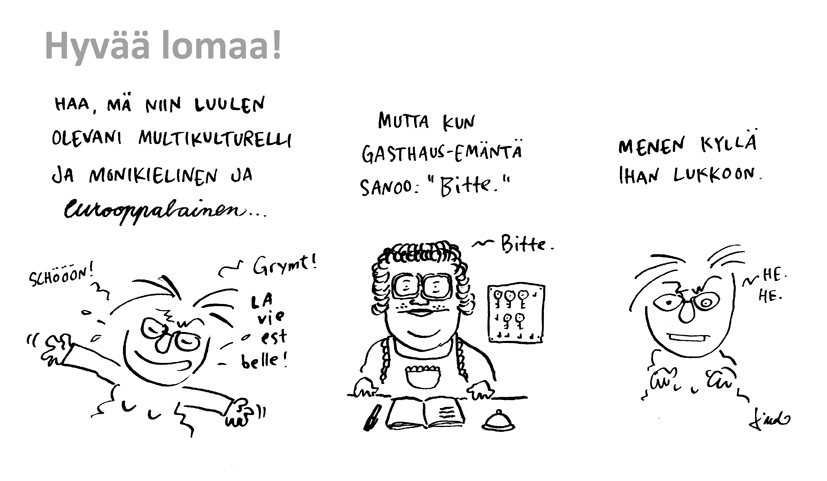 Hyvää lomaa!
HAA, MÄ NIIN LUULEN
OLEVANI MULTIKULTURELLI
JA MONIKIELINEN JA
eurooppalainen...
SCHÖÖÖN!
Grymt!
LA
vie
est
belle!
MUTTA KUN
GASTHAUS-EMÄNTÄ
SANOO: "Bitte."
Bitte.
MENEN KYLLÄ
IHAN LUKKOON.
HE.
HE.